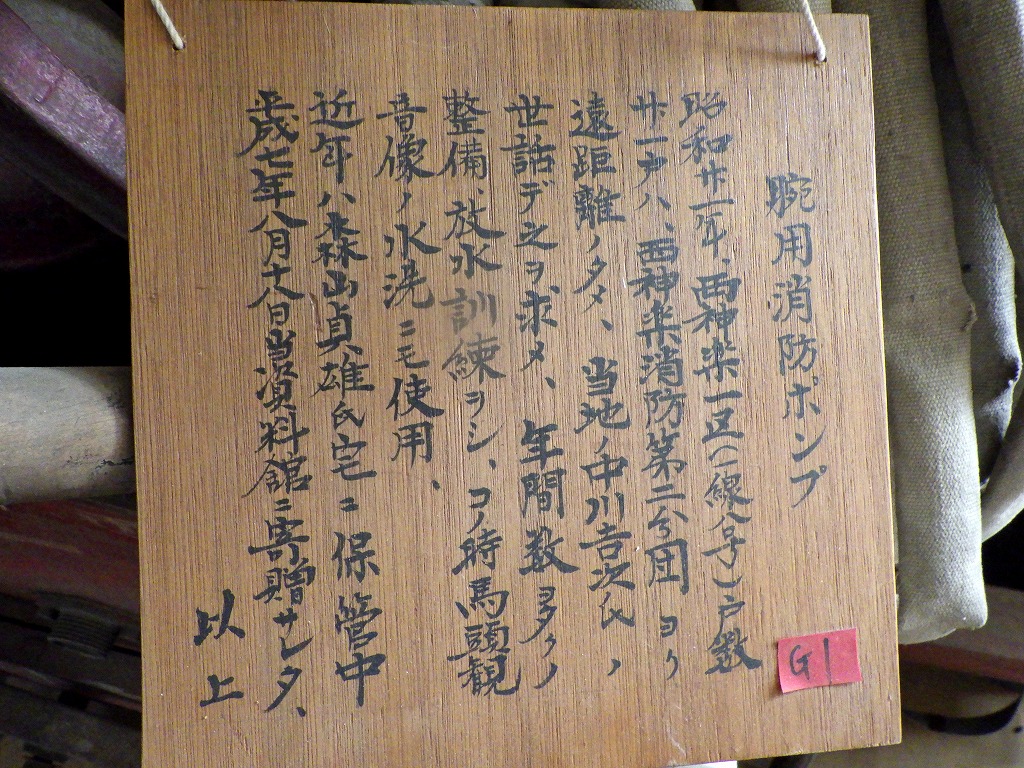 腕用消防ポンプ
昭和廿一年、西神楽一区(一線分予)戸数
廿一戸ハ、西神楽消防第二分団ヨリ
遠距離ノタメ、当地ノ中川吉次氏ノ
世話デ之ヲ求メ、年間数多クノ
整備、放水訓練ヲシ、コノ時馬頭観
音像ノ水洗ニモ使用、
近年ハ森山貞雄氏宅ニ保管中
平成七年八月十八日当資料館ニ寄贈サレタ、
以上
G1